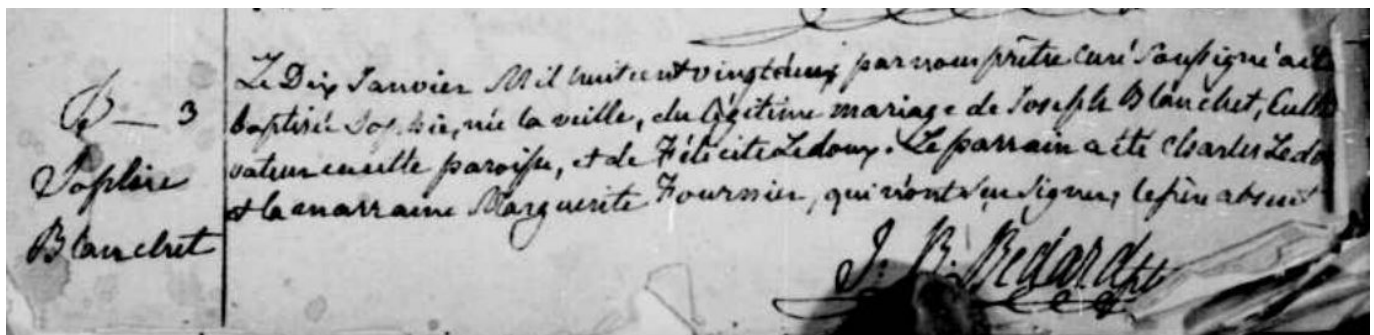 B — 3
Sophie
Blanchet
Le Dix Janvier Mil huit cent vingt deux par nous prêtre curé soussigné a été
baptisée Sophie, née la veille, du légitime mariage de Joseph Blanchet, Culti
vateur en cette paroisse, et de Félicité Ledoux. Le parrain a été Charles Ledo
et la marraine Marguerite Fournier, qui n'ont sçu signer, le père absent
J. B. Bedard ptre